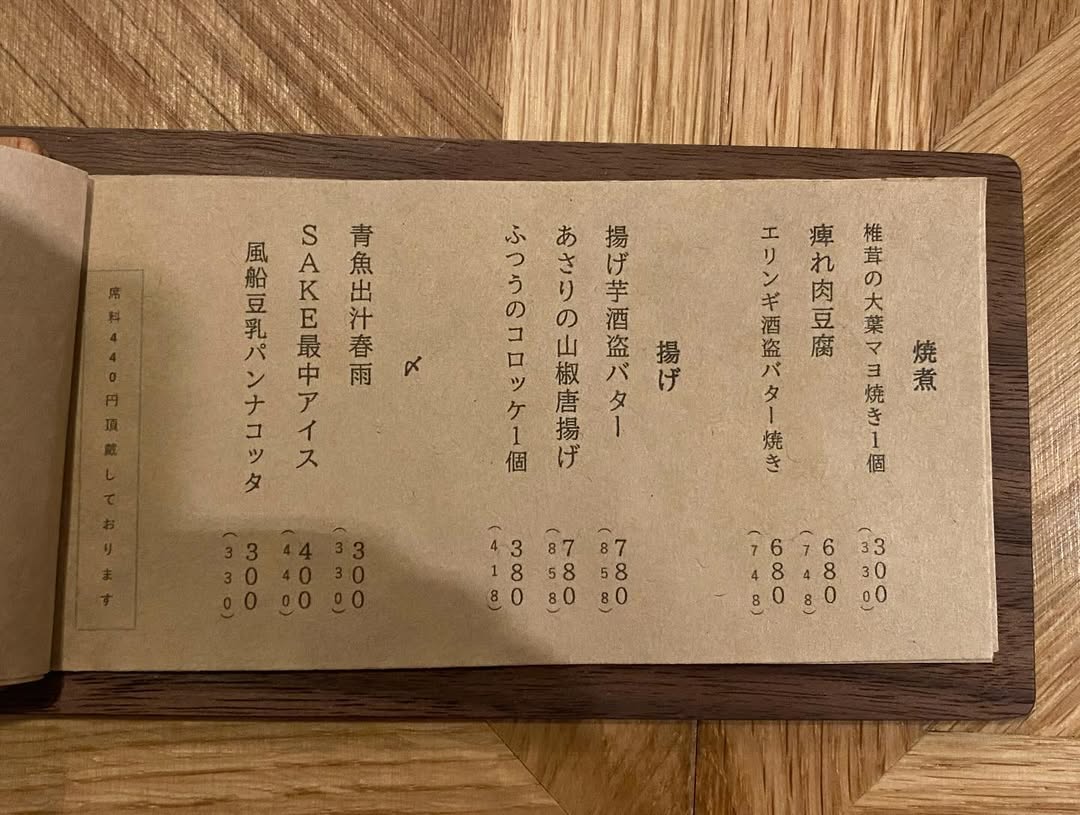 焼煮
椎茸の大葉マヨ焼き1個 300 (330)
痺れ肉豆腐 680 (748)
エリンギ酒盗バター焼き 680 (748)
揚げ
揚げ芋酒盗バター 780 (858)
あさりの山椒唐揚げ 780 (858)
ふつうのコロッケ1個 380 (418)
〆
青魚出汁春雨 300 (330)
SAKE最中アイス 400 (440)
風船豆乳パンナコッタ 300 (330)
席料440円頂戴しております